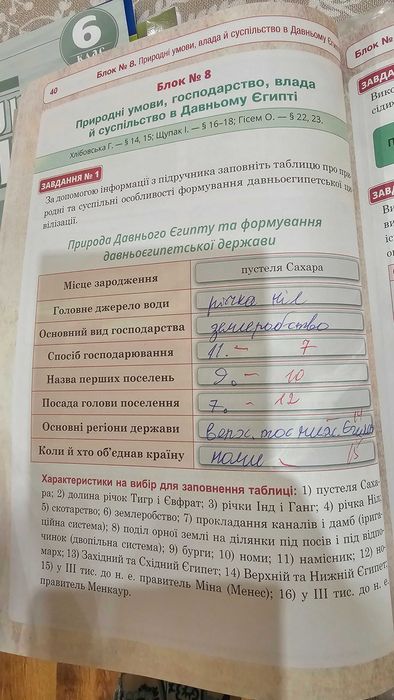 6
КЛАС
40
Блок № 8. Природні умови, влада й суспільство в Давньому
Блок №
Блок № 8
Природні умови, господарство, влада
й суспільство в Давньому Єгипті
Хлібовська Г. — § 14, 15; Щупак І. — § 16–18; Гісем О. — § 22, 23.
ЗАВДАННЯ № 1
За допомогою інформації з підручника заповніть таблицю про при-
родні та суспільні особливості формування давньоєгипетської ци-
вілізації.
Природа Давнього Єгипту та формування
давньоєгипетської держави
Місце зародження пустеля Сахара
Головне джерело води річка ніл
Основний вид господарства землеробство
Спосіб господарювання 11. – 7
Назва перших поселень 9. – 10
Посада голови поселення 7. – 12
Основні регіони держави верх. та ниж. Єгип 14
Коли й хто об'єднав країну 15
Характеристики на вибір для заповнення таблиці: 1) пустеля Саха-
ра; 2) долина річок Тигр і Євфрат; 3) річки Інд і Ганг; 4) річка Ніл;
5) скотарство; 6) землеробство; 7) прокладання каналів і дамб (ірига-
ційна система); 8) поділ орної землі на ділянки під посів і під відпо-
чинок (двопільна система); 9) бурги; 10) номи; 11) намісник; 12) но-
марх; 13) Західний та Східний Єгипет; 14) Верхній та Нижній Єгипет;
15) у III тис. до н. е. правитель Міна (Менес); 16) у III тис. до н. е.
правитель Менкаур.